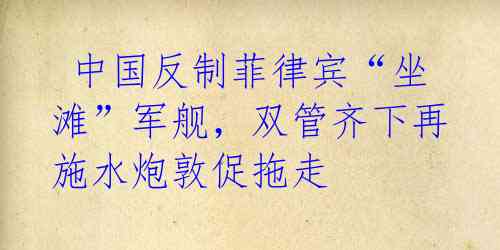 中国反制菲律宾“坐
滩”军舰，双管齐下再
施水炮敦促拖走